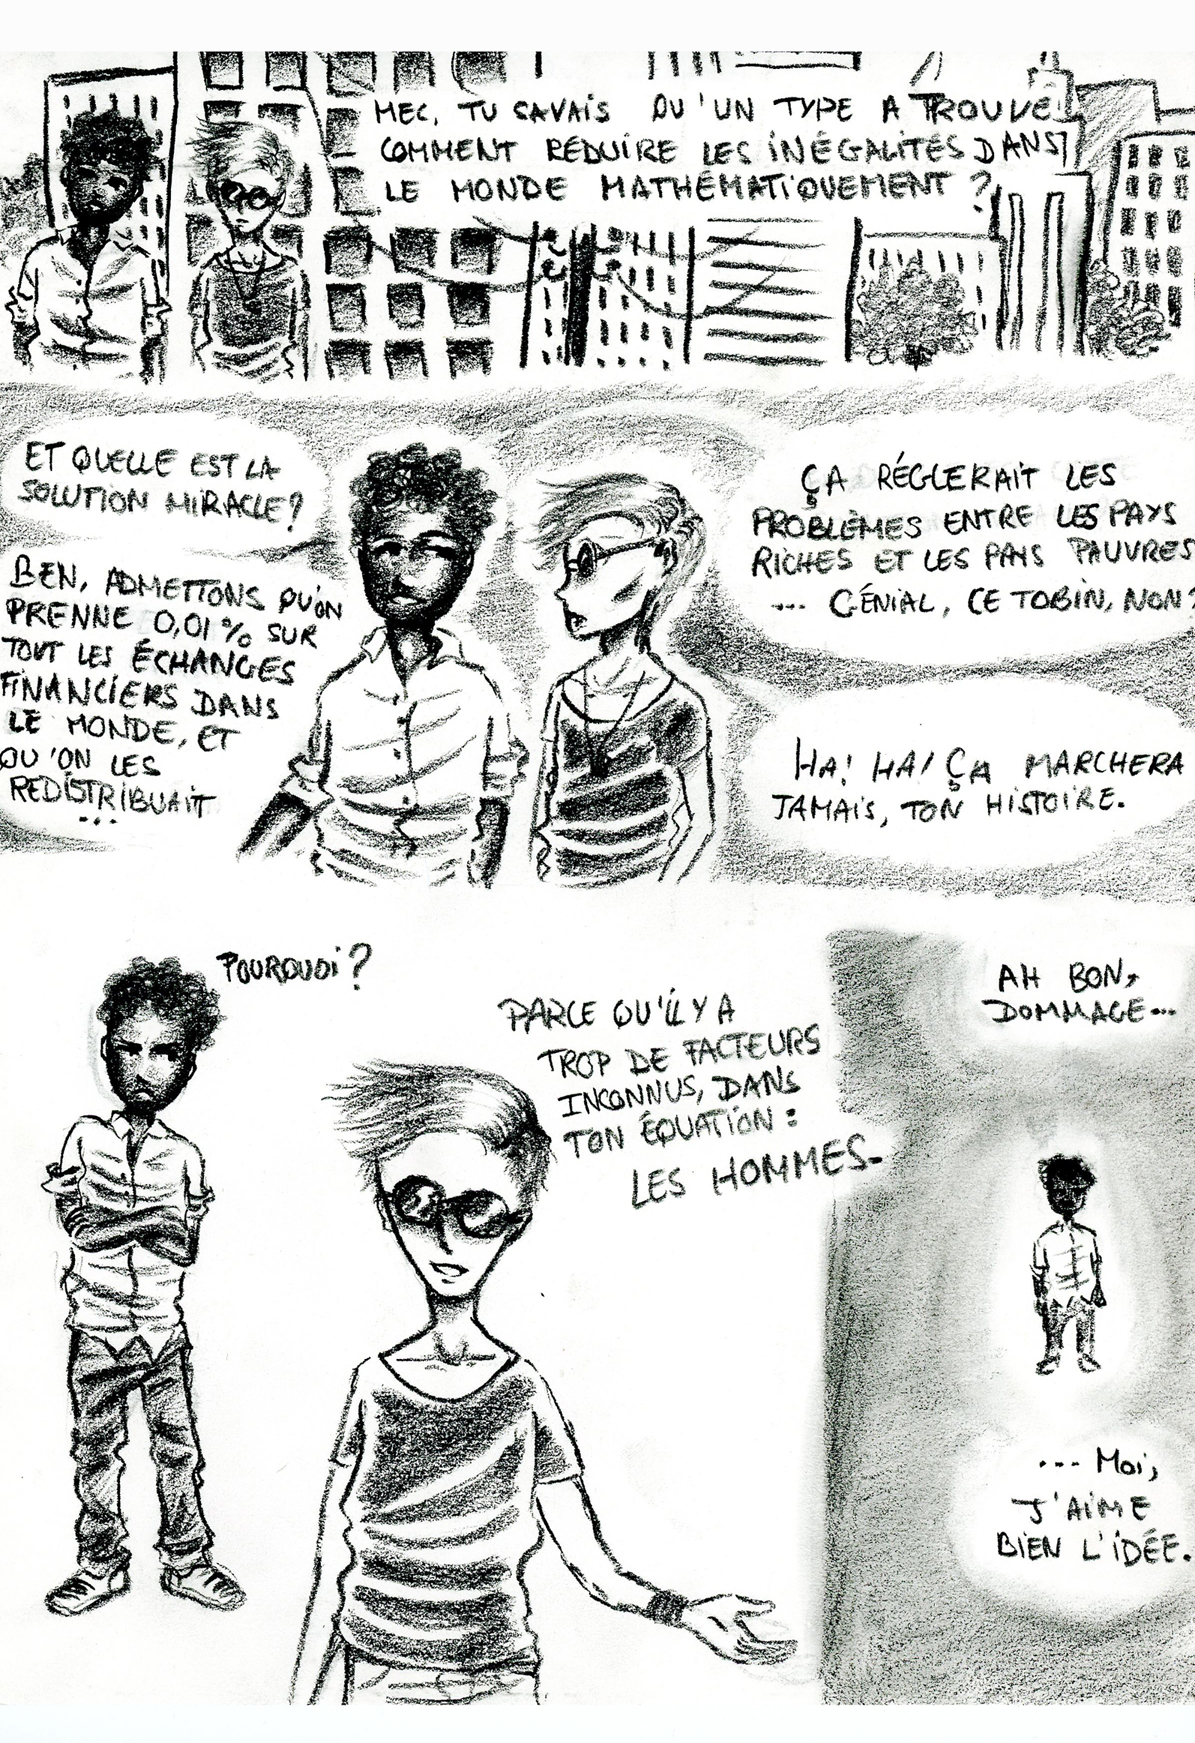 MEC, TU SAVAIS QU'UN TYPE A TROUVÉ
COMMENT RÉDUIRE LES INÉGALITÉS DANS
LE MONDE MATHÉMATIQUEMENT ?
ET QUELLE EST LA
SOLUTION MIRACLE ?
BEN, ADMETTONS QU'ON
PRENNE 0,01 % SUR
TOUT LES ÉCHANGES
FINANCIERS DANS
LE MONDE, ET
QU'ON LES
REDISTRIBUAIT
...
ÇA RÉGLERAIT LES
PROBLÈMES ENTRE LES PAYS
RICHES ET LES PAYS PAUVRES
... GÉNIAL, CE TOBIN, NON ?
HA ! HA ! ÇA MARCHERA
JAMAIS, TON HISTOIRE.
POURQUOI ?
PARCE QU'IL Y A
TROP DE FACTEURS
INCONNUS, DANS
TON ÉQUATION :
LES HOMMES.
AH BON,
DOMMAGE...
... MOI,
J'AIME
BIEN L'IDÉE.